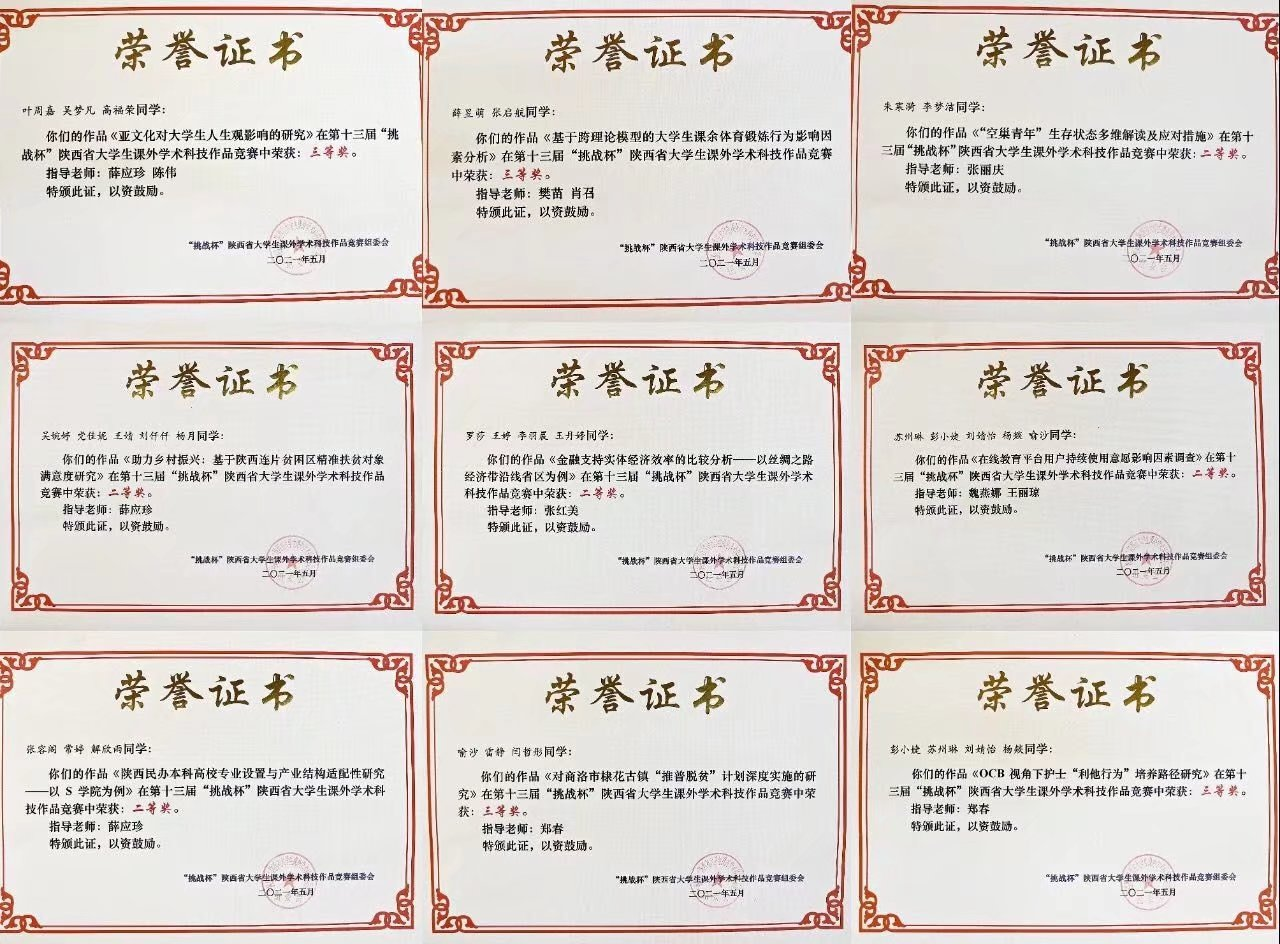 荣誉证书
叶周嘉 吴梦凡 高福荣同学：
你们的作品《亚文化对大学生人生观影响的研究》在第十三届“挑
战杯”陕西省大学生课外学术科技作品竞赛中荣获：三等奖。
指导老师：薛应珍 陈伟
特颁此证，以资鼓励。
“挑战杯”陕西省大学生课外学术科技作品竞赛组委会
二〇二一年五月
荣誉证书
薛昱萌 张启航同学：
你们的作品《基于跨理论模型的大学生课余体育锻炼行为影响因
素分析》在第十三届“挑战杯”陕西省大学生课外学术科技作品竞赛
中荣获：三等奖。
指导老师：樊苗 肖召
特颁此证，以资鼓励。
“挑战杯”陕西省大学生课外学术科技作品竞赛组委会
二〇二一年五月
荣誉证书
朱寒漪 李梦洁同学：
你们的作品《“空巢青年”生存状态多维解读及应对措施》在第十
三届“挑战杯”陕西省大学生课外学术科技作品竞赛中荣获：二等奖。
指导老师：张丽庆
特颁此证，以资鼓励。
“挑战杯”陕西省大学生课外学术科技作品竞赛组委会
二〇二一年五月
荣誉证书
吴婉婷 党佳妮 王婧 刘仟仟 杨月同学：
你们的作品《助力乡村振兴：基于陕西连片贫困区精准扶贫对象
满意度研究》在第十三届“挑战杯”陕西省大学生课外学术科技作品
竞赛中荣获：二等奖。
指导老师：薛应珍
特颁此证，以资鼓励。
“挑战杯”陕西省大学生课外学术科技作品竞赛组委会
二〇二一年五月
荣誉证书
罗莎 王婷 李羽晨 王丹婷同学：
你们的作品《金融支持实体经济效率的比较分析——以丝绸之路
经济带沿线省区为例》在第十三届“挑战杯”陕西省大学生课外学术
科技作品竞赛中荣获：二等奖。
指导老师：张红美
特颁此证，以资鼓励。
“挑战杯”陕西省大学生课外学术科技作品竞赛组委会
二〇二一年五月
荣誉证书
苏州琳 彭小婕 刘婧怡 杨燚 喻沙同学：
你们的作品《在线教育平台用户持续使用意愿影响因素调查》在第十
三届“挑战杯”陕西省大学生课外学术科技作品竞赛中荣获：二等奖。
指导老师：魏燕娜 王丽琼
特颁此证，以资鼓励。
“挑战杯”陕西省大学生课外学术科技作品竞赛组委会
二〇二一年五月
荣誉证书
张容阁 常婷 解欣雨同学：
你们的作品《陕西民办本科高校专业设置与产业结构适配性研究
——以 S 学院为例》在第十三届“挑战杯”陕西省大学生课外学术科
技作品竞赛中荣获：二等奖。
指导老师：薛应珍
特颁此证，以资鼓励。
“挑战杯”陕西省大学生课外学术科技作品竞赛组委会
二〇二一年五月
荣誉证书
喻沙 雷静 闫哲彤同学：
你们的作品《对商洛市棣花古镇“推普脱贫”计划深度实施的研
究》在第十三届“挑战杯”陕西省大学生课外学术科技作品竞赛中荣
获：三等奖。
指导老师：郑春
特颁此证，以资鼓励。
“挑战杯”陕西省大学生课外学术科技作品竞赛组委会
二〇二一年五月
荣誉证书
彭小婕 苏州琳 刘婧怡 杨燚同学：
你们的作品《OCB 视角下护士“利他行为”培养路径研究》在第十
三届“挑战杯”陕西省大学生课外学术科技作品竞赛中荣获：三等奖。
指导老师：郑春
特颁此证，以资鼓励。
“挑战杯”陕西省大学生课外学术科技作品竞赛组委会
二〇二一年五月